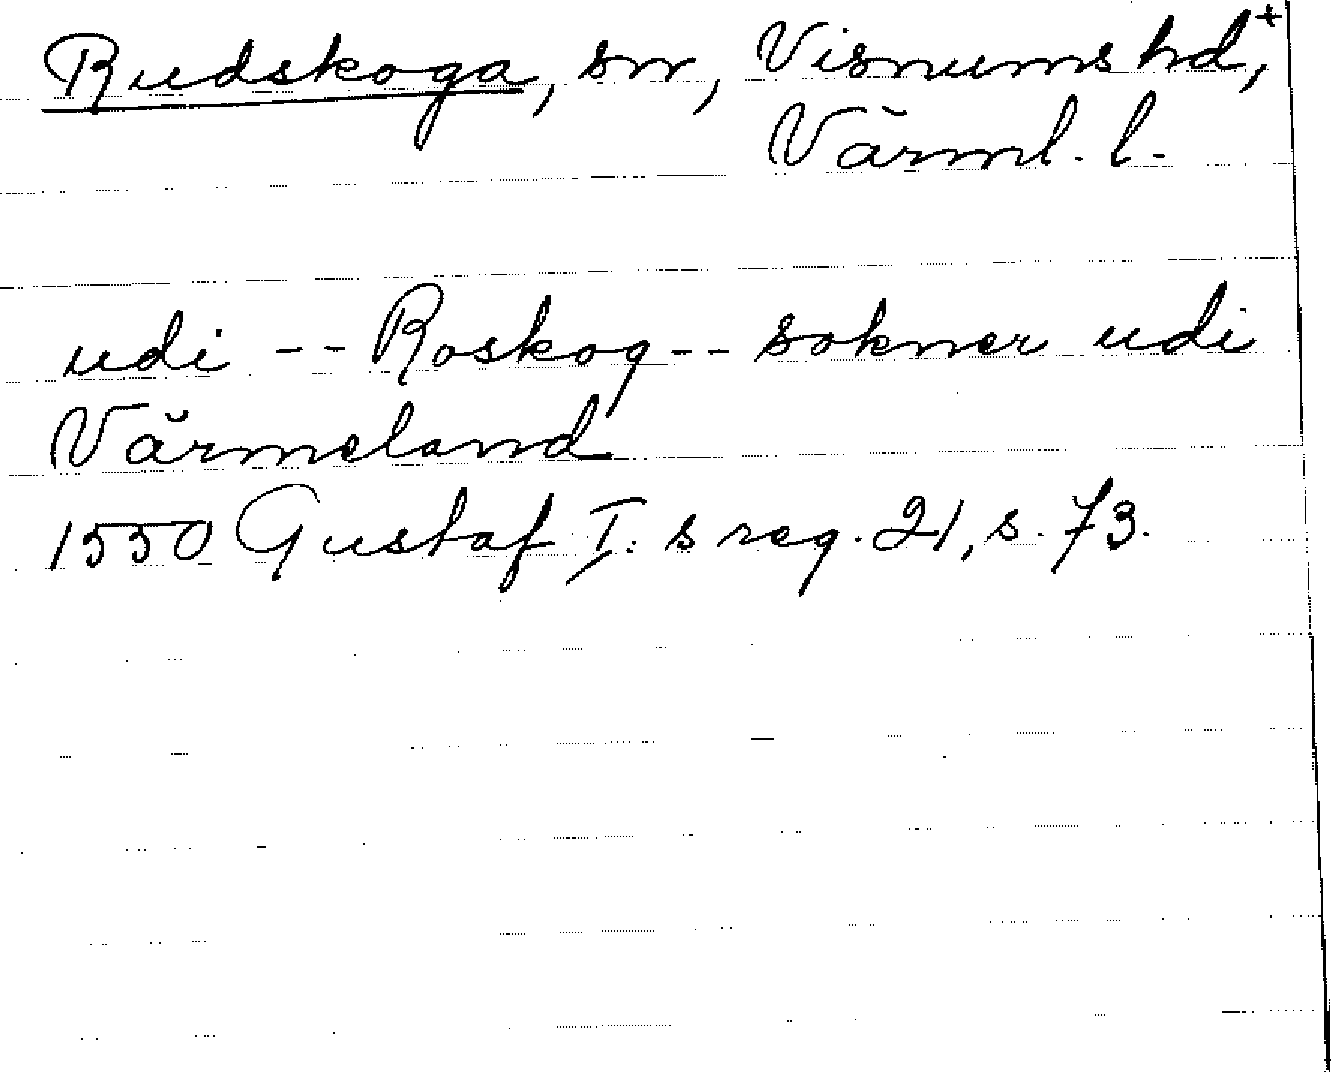 Rudskoga, sn, Visnums hd,+
Värml. l.
udi -- Roskog -- sokner udi
Värmeland
1550 Gustaf I:s reg. 21, s. 73.